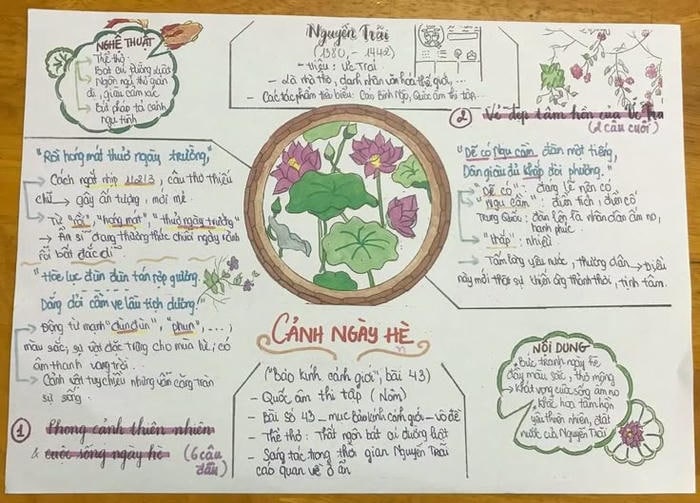 NGHỆ THUẬT
Thể thơ:
Bát cú Đường luật
Ngôn ngữ thơ giản
dị, giàu cảm xúc
Bút pháp tả cảnh
ngụ tình
Nguyễn Trãi
(1380 - 1442)
- Hiệu: Ức Trai
- Là nhà thơ, danh nhân văn hóa thế giới,...
- Các tác phẩm tiêu biểu: Cáo Bình Ngô, Quốc âm thi tập...
② Vẻ đẹp tâm hồn của Ức Trai
(2 câu cuối)
"Rồi hóng mát thuở ngày trường,"
Cách ngắt nhịp 1/2/3, câu thơ thiếu
chữ → gây ấn tượng, mới mẻ
Từ "rồi", "hóng mát", "thuở ngày trường"
→ Ẩn sĩ đang thưởng thức chuỗi ngày rảnh
rỗi bất đắc dĩ
"Hòe lục đùn đùn tán rợp giương.
Dắng dỏi cầm ve lầu tịch dương."
Động từ mạnh "đùn đùn", "phun",...,
màu sắc, sự vật đặc trưng cho mùa hè, có
âm thanh vang trời.
Cảnh vật tuy chiều nhưng vẫn căng tràn
sự sống
① Phong cảnh thiên nhiên
& cuộc sống ngày hè (6 câu
đầu)
"Dẽ có Ngu cầm đàn một tiếng,
Dân giàu đủ khắp đòi phương."
"Dẽ có": đáng lẽ nên có
"Ngu cầm": điển tích, điển cố
Trung Quốc: đàn lên là nhân dân ấm no,
hạnh phúc
"khắp": nhiều
Tấm lòng yêu nước, thương dân → Điều
này mới thật sự khiến ông thảnh thơi, tịnh tâm.
CẢNH NGÀY HÈ
("Bảo kính cảnh giới", bài 43)
- Quốc âm thi tập (Nôm)
- Bài số 43 _ mục Bảo kính cảnh giới _ vô đề
- Thể thơ: Thất ngôn bát cú Đường luật
- Sáng tác trong thời gian Nguyễn Trãi
cáo quan về ở ẩn
NỘI DUNG
Bức tranh ngày hè
đầy màu sắc, thơ mộng
→ Khát vọng cuộc sống ấm no
Khắc họa tâm hồn
yêu thiên nhiên, đất
nước của Nguyễn Trãi